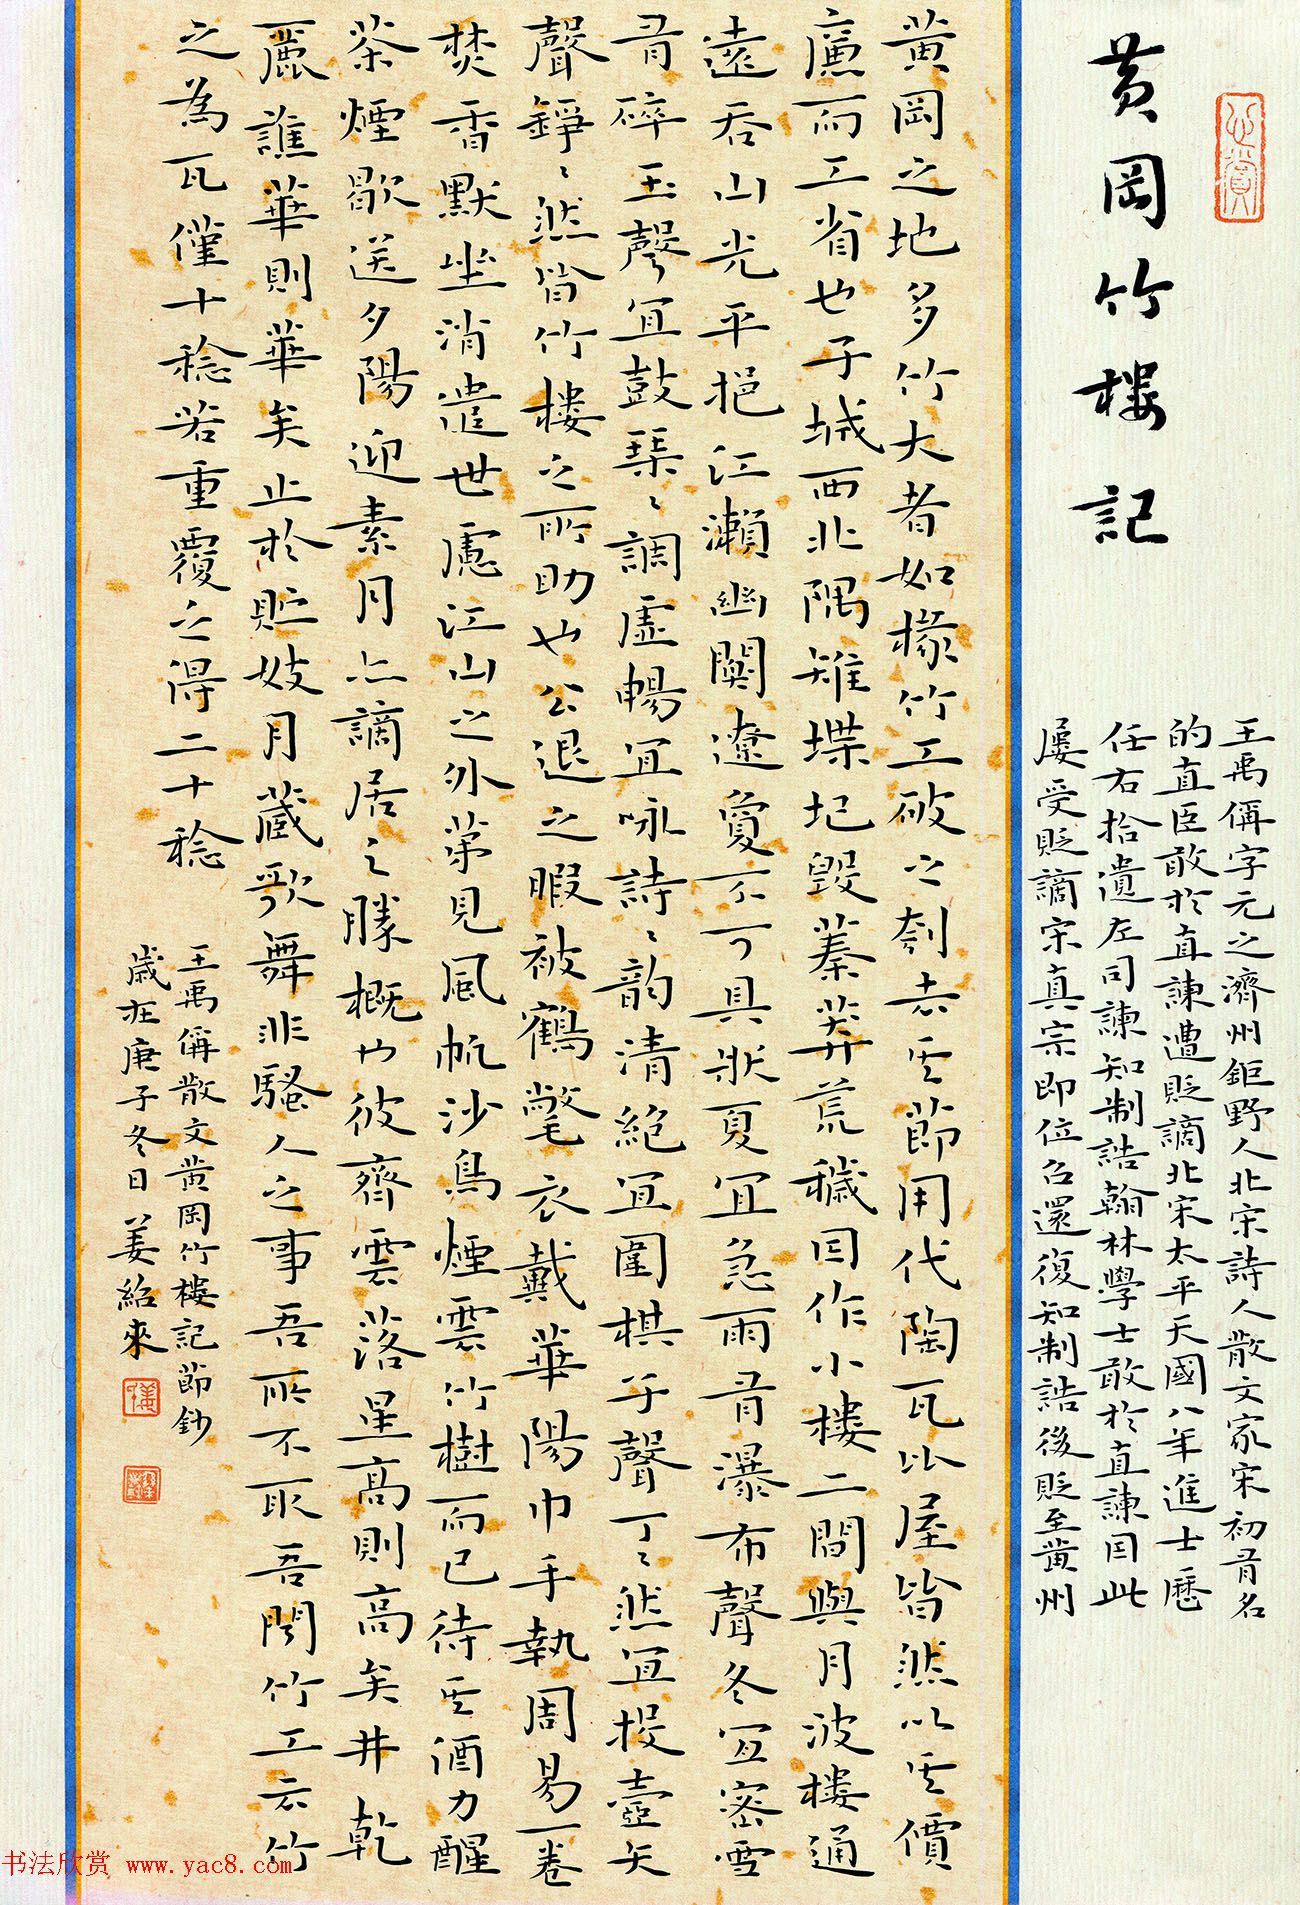 黄岡竹樓記
王禹偁字元之濟州鉅野人北宋詩人散文家宋初有名
的直臣敢於直諫遭貶謫北宋太平天國八年進士歷
任右拾遺左司諫知制誥翰林學士敢於直諫因此
屢受貶謫宋真宗即位召還復知制誥後貶至黄州
黄岡之地多竹大者如椽竹工破之刳去其節用代陶瓦比屋皆然以其價
廉而工省也子城西北隅雉堞圮毀蓁莽荒穢因作小樓二間與月波樓通
遠吞山光平挹江瀨幽闃遼夐不可具狀夏宜急雨有瀑布聲冬宜密雪
有碎玉聲宜鼓琴琴調虛暢宜咏詩詩韵清絶宜圍棋子聲丁丁然宜投壺矢
聲錚錚然皆竹樓之所助也公退之暇被鶴氅衣戴華陽巾手執周易一卷
焚香默坐消遣世慮江山之外第見風帆沙鳥煙雲竹樹而已待其酒力醒
茶煙歇送夕陽迎素月亦謫居之勝概也彼齊雲落星高則高矣井乾
麗譙華則華矣止於貯妓月藏歌舞非騷人之事吾所不取吾聞竹工云竹
之為瓦僅十稔若重覆之得二十稔
王禹偁散文黄岡竹樓記節鈔
歲在庚子冬日姜紹來
书法欣赏 www.yac8.com